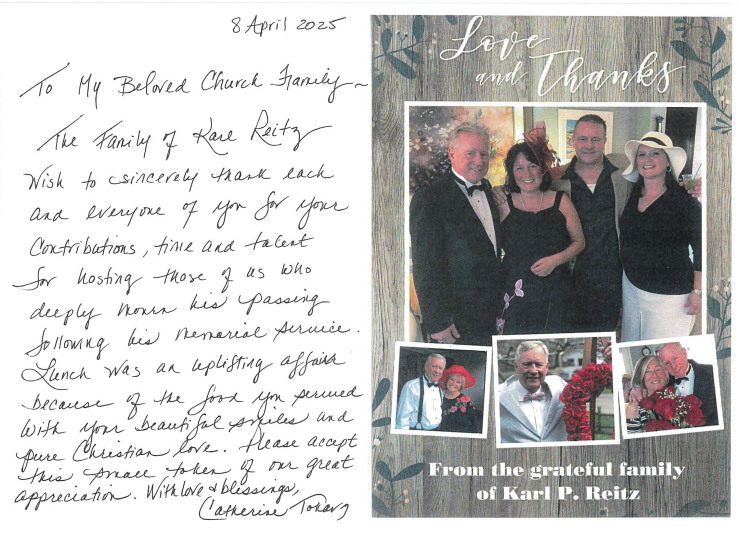 8 April 2025
To My Beloved Church Family~
The Family of Karl Reitz
Wish to sincerely thank each
and everyone of you for your
Contributions, time and talent
for hosting those of us who
deeply mourn his passing
following his memorial service.
Lunch was an uplifting affair
because of the food you served
with your beautiful smiles and
pure Christian love. Please accept
this small token of our great
appreciation. With love & blessings,
Catherine
Love
and Thanks
From the grateful family
of Karl P. Reitz